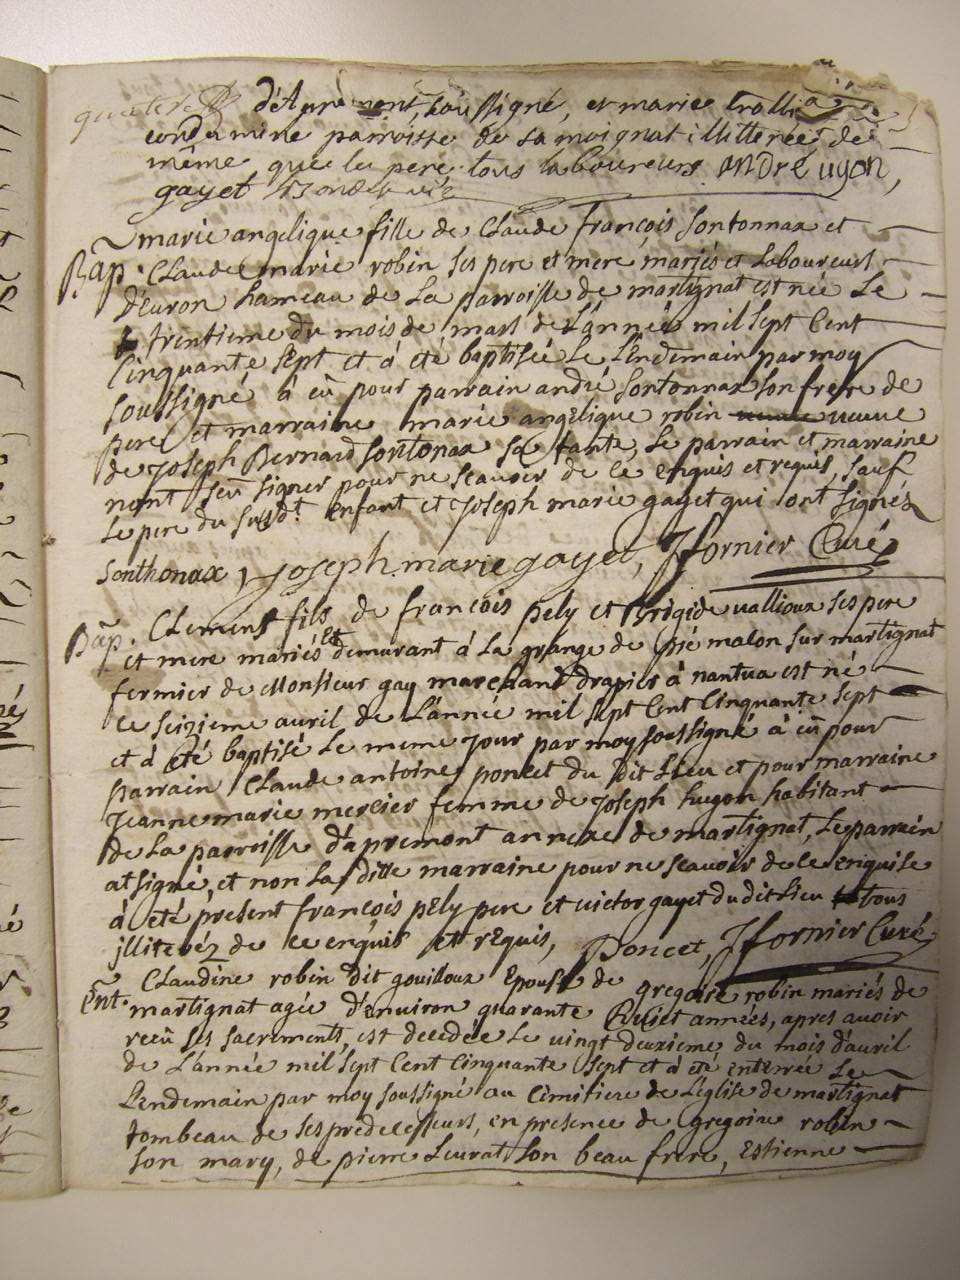 d'Apremont, soussigné, et marie
parroisse de Samoignat illitereé, de
même que le pere, tous laboureurs. andre uyon,
gayet
marie angelique fille de Claude françois sontonnax et
Bap. Claude marie robin ses pere et mere mariés et Laboureurs
d'Euron hameau de La parroisse de martignat est née Le
trentieme du mois de mars de L'année mil sept Cent
Cinquante sept et á eté baptisée Le Lendemain par moy
soussigné á eû pour parrain andré sontonnax son frere de
pere et marraine marie angelique robin veuve
de Joseph Bernard sontonax sa tante, Le parrain et marraine
nont seu signer pour ne scavoir de ce enquis et requis, sauf
Le pere du susdt. enfant et Joseph marie gayet qui ont signés
Sonthonax Joseph. marie gayet, Jfornier Curé
Bap. Clement fils de françois pely et Brigide vallioux ses pere
et mere mariés Et demurant á La grange de pré malon sur martignat
fermier de Monsieur gay marchand drapier á nantua est né
Le seizieme avril de L'année mil sept Cent Cinquante sept
et á eté baptisé Le meme Jour par moy soussigné á eû pour
parrain Claude antoine poncet du dit Lieu et pour marraine
Jeanne marie mercier femme de Joseph hugon habitant
de La parroisse d'apremont annexe de martignat, Le parrain
at signé, et non La ditte marraine pour ne scavoir de ce enquise
á eté present françois pEly pere et victor gayet du dit Lieu tous
jlliterés de ce enquis et rEquis, Poncet, Jfornier Curé
Claudine robin dit gouilloux Epouse de gregoire robin mariés de
Ent. martignat agée d'environ quarante années, apres avoir
receû ses sacrements, est decedée Le vingt deuxieme du mois d'avril
de L'année mil sept Cent Cinquante sept et á eté enterrée Le
Lendemain par moy soussigné au Cimitiere de L'Eglise de martignat
tombeau de ses predecesseurs, en presence de gregoire robin
son mary, de pierre Leurat son beau frere, Estienne